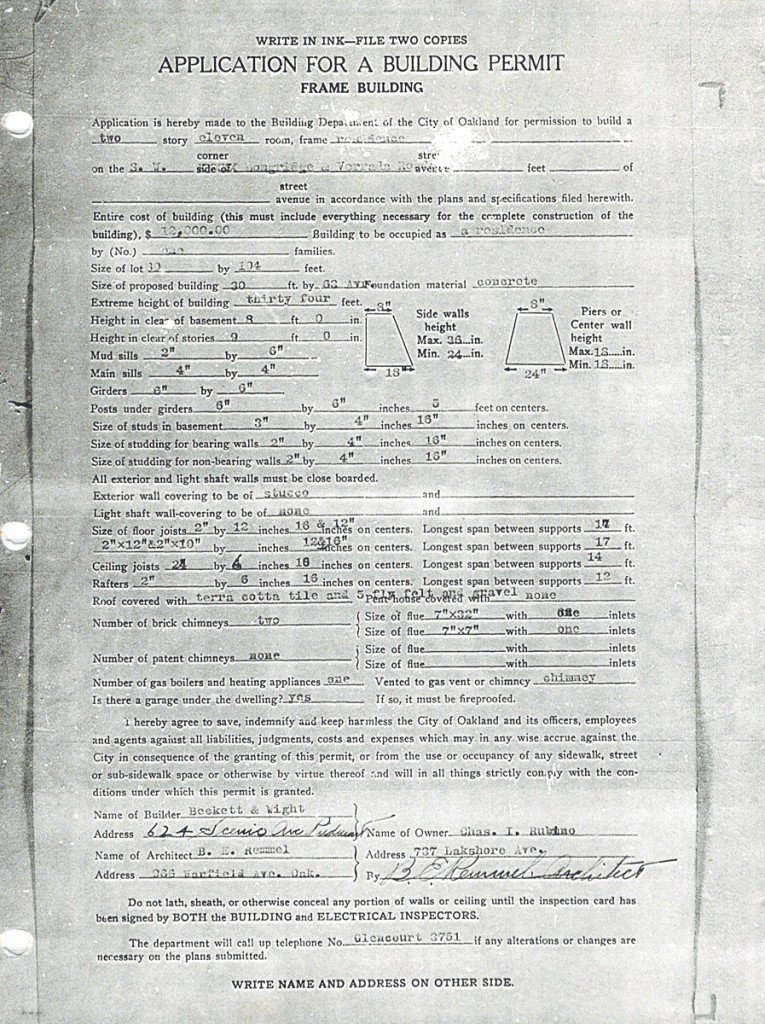 WRITE IN INK—FILE TWO COPIES
APPLICATION FOR A BUILDING PERMIT
FRAME BUILDING
Application is hereby made to the Building Department of the City of Oakland for permission to build a
two story eleven room, frame residence
corner street
on the S. W. side of Longridge & avenue feet of
street
avenue in accordance with the plans and specifications filed herewith.
Entire cost of building (this must include everything necessary for the complete construction of the
building), $ 12,000.00 Building to be occupied as a residence
by (No.) one families.
Size of lot by 104 feet.
Size of proposed building 30 ft. by 63 Foundation material concrete
Extreme height of building thirty four feet.
8" 8"
Side walls height Max. 36 in. Min. 24 in.
Piers or Center wall height Max. 18 in. Min. 18 in.
18" 24"
Height in clear of basement 8 ft. 0 in.
Height in clear of stories 9 ft. 0 in.
Mud sills 2" by 6"
Main sills 4" by 4"
Girders 6" by 6"
Posts under girders 6" by 6" inches 5 feet on centers.
Size of studs in basement 3" by 4" inches 16" inches on centers.
Size of studding for bearing walls 2" by 4" inches 16" inches on centers.
Size of studding for non-bearing walls 2" by 4" inches 16" inches on centers.
All exterior and light shaft walls must be close boarded.
Exterior wall covering to be of stucco and
Light shaft wall-covering to be of none and
Size of floor joists 2" by 12 inches 16 & 12" inches on centers. Longest span between supports 17 ft.
2"x12"&2"x10" by inches 12&16" inches on centers. Longest span between supports 17 ft.
Ceiling joists 2" by 6 inches 16 inches on centers. Longest span between supports 14 ft.
Rafters 2" by 6 inches 16 inches on centers. Longest span between supports 12 ft.
Roof covered with terra cotta tile and 5 ply felt and gravel Pent-house covered with none
Number of brick chimneys two Size of flue 7"x32" with one inlets
Size of flue 7"x7" with one inlets
Number of patent chimneys none Size of flue with inlets
Size of flue with inlets
Number of gas boilers and heating appliances one Vented to gas vent or chimney chimney
Is there a garage under the dwelling? yes If so, it must be fireproofed.
I hereby agree to save, indemnify and keep harmless the City of Oakland and its officers, employees
and agents against all liabilities, judgments, costs and expenses which may in any wise accrue against the
City in consequence of the granting of this permit, or from the use or occupancy of any sidewalk, street
or sub-sidewalk space or otherwise by virtue thereof and will in all things strictly comply with the con-
ditions under which this permit is granted.
Name of Builder Beckett & Wight
Address 624 Scenic Ave Piedmont Name of Owner Chas. I. Rubino
Name of Architect B. E. Remmel Address 737 Lakshore Ave.
Address Warfield Ave. Oak. By B E Remmel Architect
Do not lath, sheath, or otherwise conceal any portion of walls or ceiling until the inspection card has
been signed by BOTH the BUILDING and ELECTRICAL INSPECTORS.
The department will call up telephone No. Glencourt 3751 if any alterations or changes are
necessary on the plans submitted.
WRITE NAME AND ADDRESS ON OTHER SIDE.